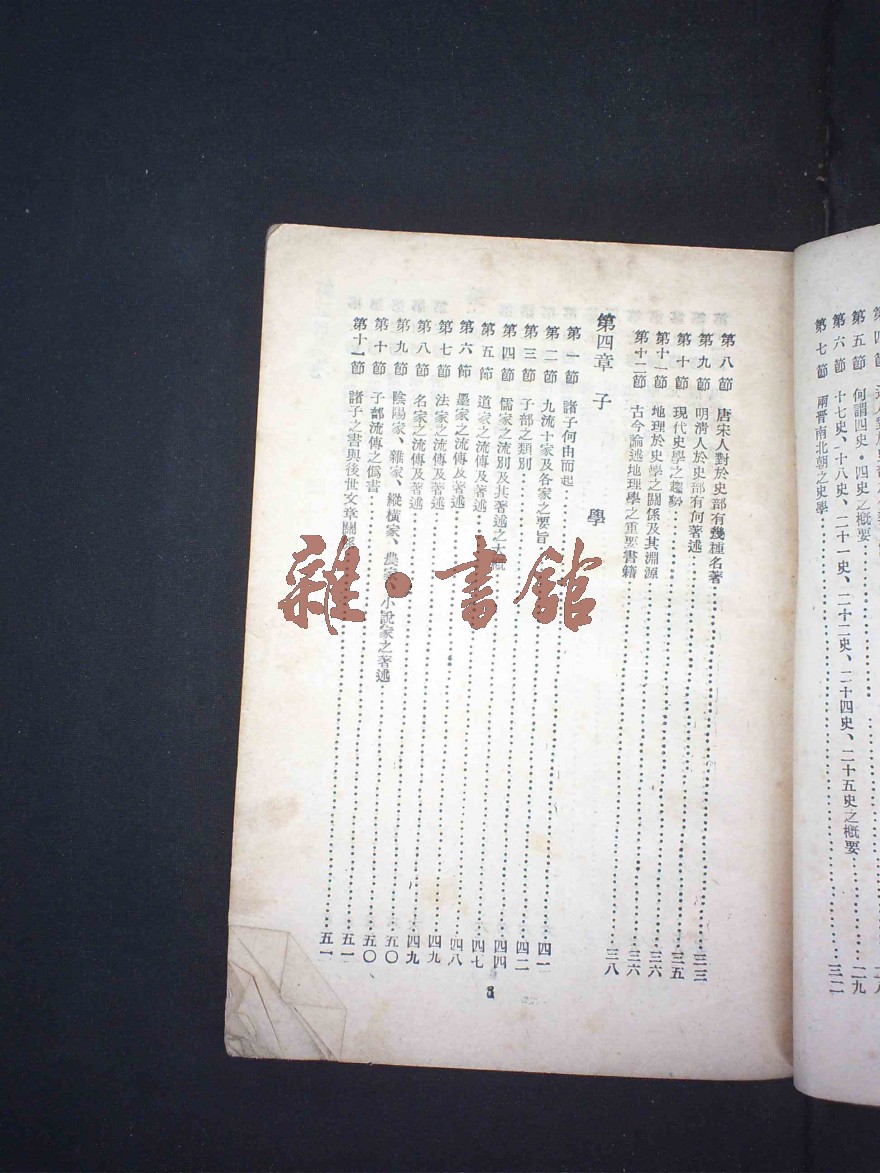 第五節 何謂四史。四史之概要……二八
第六節 十七史、十八史、二十一史、二十二史、二十四史、二十五史之概要……二九
第七節 兩晉南北朝之史學……三二
第八節 唐宋人對於史部有幾種名著……三三
第九節 明清人於史部有何著述……三五
第十節 現代史學之趨勢……三六
第十一節 地理於史學之關係及其淵源……三六
第十二節 古今論述地理學之重要書籍……三八
第四章 子 學
第一節 諸子何由而起……四一
第二節 九流十家及各家之要旨……四二
第三節 子部之類別……四四
第四節 儒家之流別及其著述之大概……四七
第五節 道家之流傳及著述……四八
第六節 墨家之流傳及著述……四九
第七節 法家之流傳及著述……四九
第八節 名家之流傳及著述……五〇
第九節 陰陽家、雜家、縱橫家、農家、小說家之著述……五〇
第十節 子部流傳之僞書……五一
第十一節 諸子之書與後世文章關係……五一
雜·書館